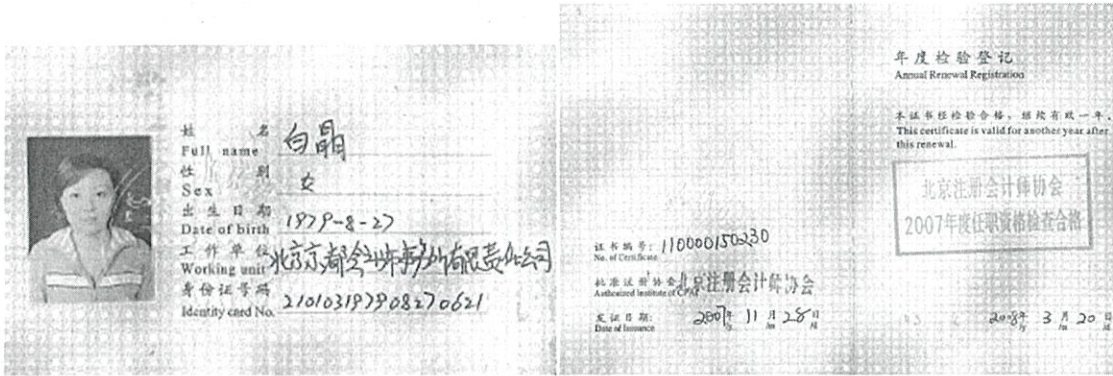 姓 名 白晶
Full name
性 别 女
Sex
出生日期 1979-8-27
Date of birth
工作单位 北京京都会计师事务所有限责任公司
Working unit
身份证号码 210103197908270621
Identity card No.
证书编号: 110000150230
No. of Certificate
批准注册协会: 北京注册会计师协会
Authorized Institute of CPAs
发证日期: 2007年 11月 28日
Date of Issuance /y /m /d
年度检验登记
Annual Renewal Registration
本证书经检验合格，继续有效一年。
This certificate is valid for another year after
this renewal.
北京注册会计师协会
2007年度任职资格检查合格
2008年 3月 20日
/y /m /d